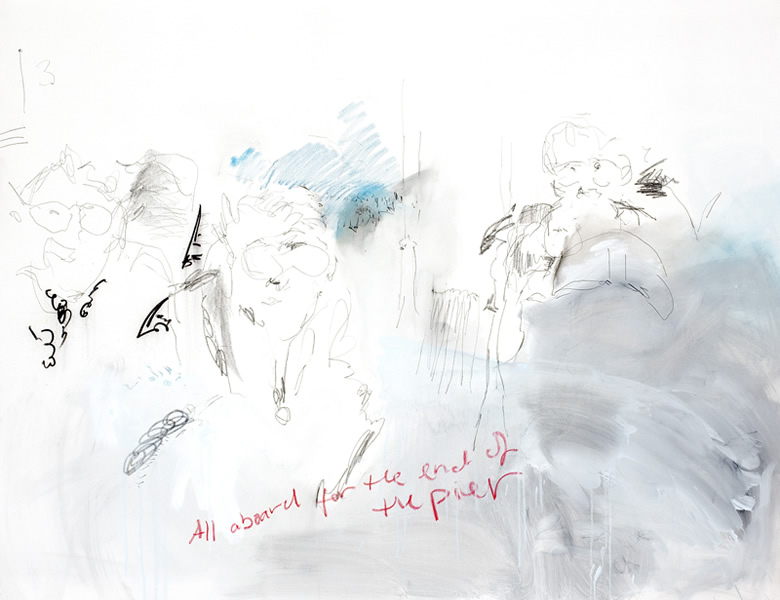 3
All aboard for the end of
the pier